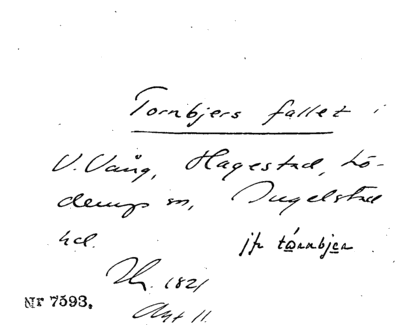 Tornbjers fallet i
V. Vång, Hagestad, Lö-
derups sn, Ingelstad
hd. jfr tornbjer
1821
Akt 11.
Nr 7593.